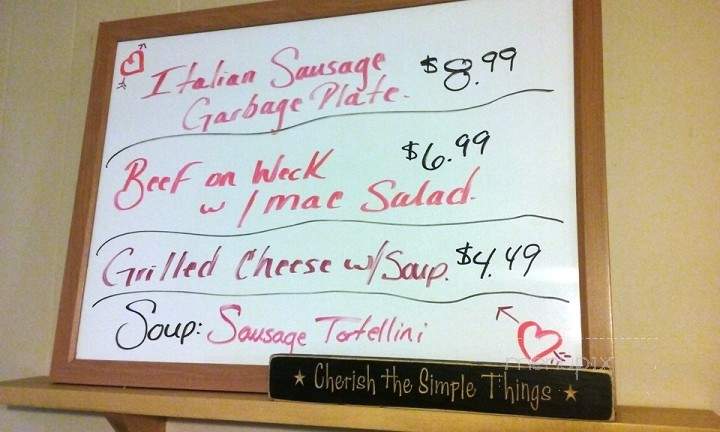 Italian Sausage $8.99
Garbage Plate.
Beef on Weck $6.99
w/mac Salad.
Grilled Cheese w/Soup. $4.49
Soup: Sausage Tortellini
menupix
★ Cherish the Simple Things ★